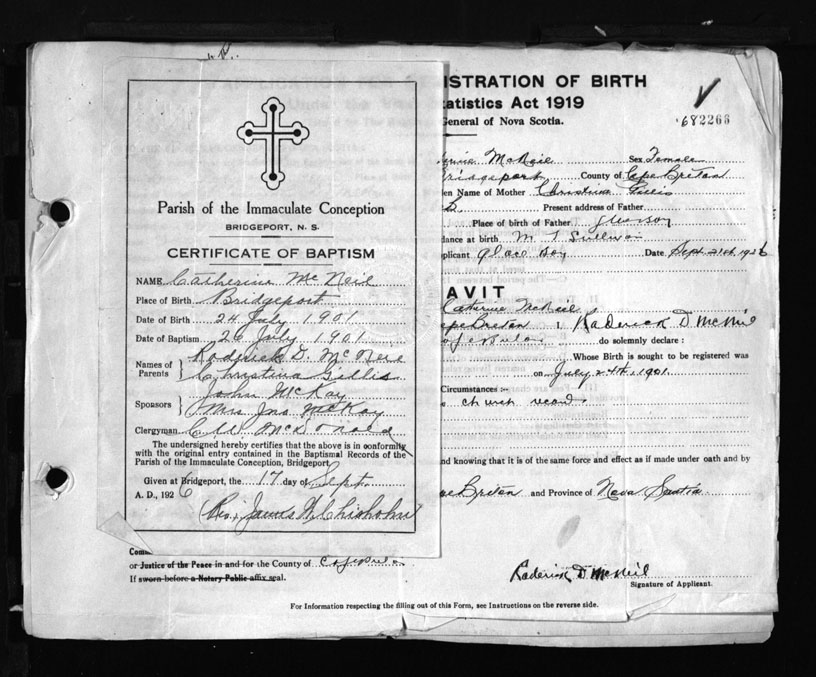 Parish of the Immaculate Conception
BRIDGEPORT, N. S.
CERTIFICATE OF BAPTISM
NAME Catherine McNeil
Place of Birth Bridgeport
Date of Birth 24 July, 1901
Date of Baptism 26 July, 1901
Names of Parents } Roderick D. McNeil
Christina Gillis
Sponsors } John McKay
Mrs Jno McKay
Clergyman C W McDonald
The undersigned hereby certifies that the above is in conformity
with the original entry contained in the Baptismal Records of the
Parish of the Immaculate Conception, Bridgeport
Given at Bridgeport, the 17 day of Sept.
A. D., 1926
Rev. James W. Chisholm
ISTRATION OF BIRTH
tatistics Act 1919
General of Nova Scotia.
682266
McNeil Sex Female
Bridgeport County of Cape Breton
den Name of Mother Christina Gillis
Present address of Father
Place of birth of Father
dance at birth M T Sullivan
plicant Glace Bay Date Sept 21st 1926
AVIT
Catherine McNeil
ape Breton I, Roderick D McNeil
do solemnly declare :
Whose Birth is sought to be registered was
on July 24th, 1901
Circumstances :-
church record.
nd knowing that it is of the same force and effect as if made under oath and by
ape Breton and Province of Nova Scotia
Com
or Justice of the Peace in and for the County of
If sworn before a Notary Public affix seal.
Roderick D McNeil
Signature of Applicant.
For Information respecting the filling out of this Form, see Instructions on the reverse side.